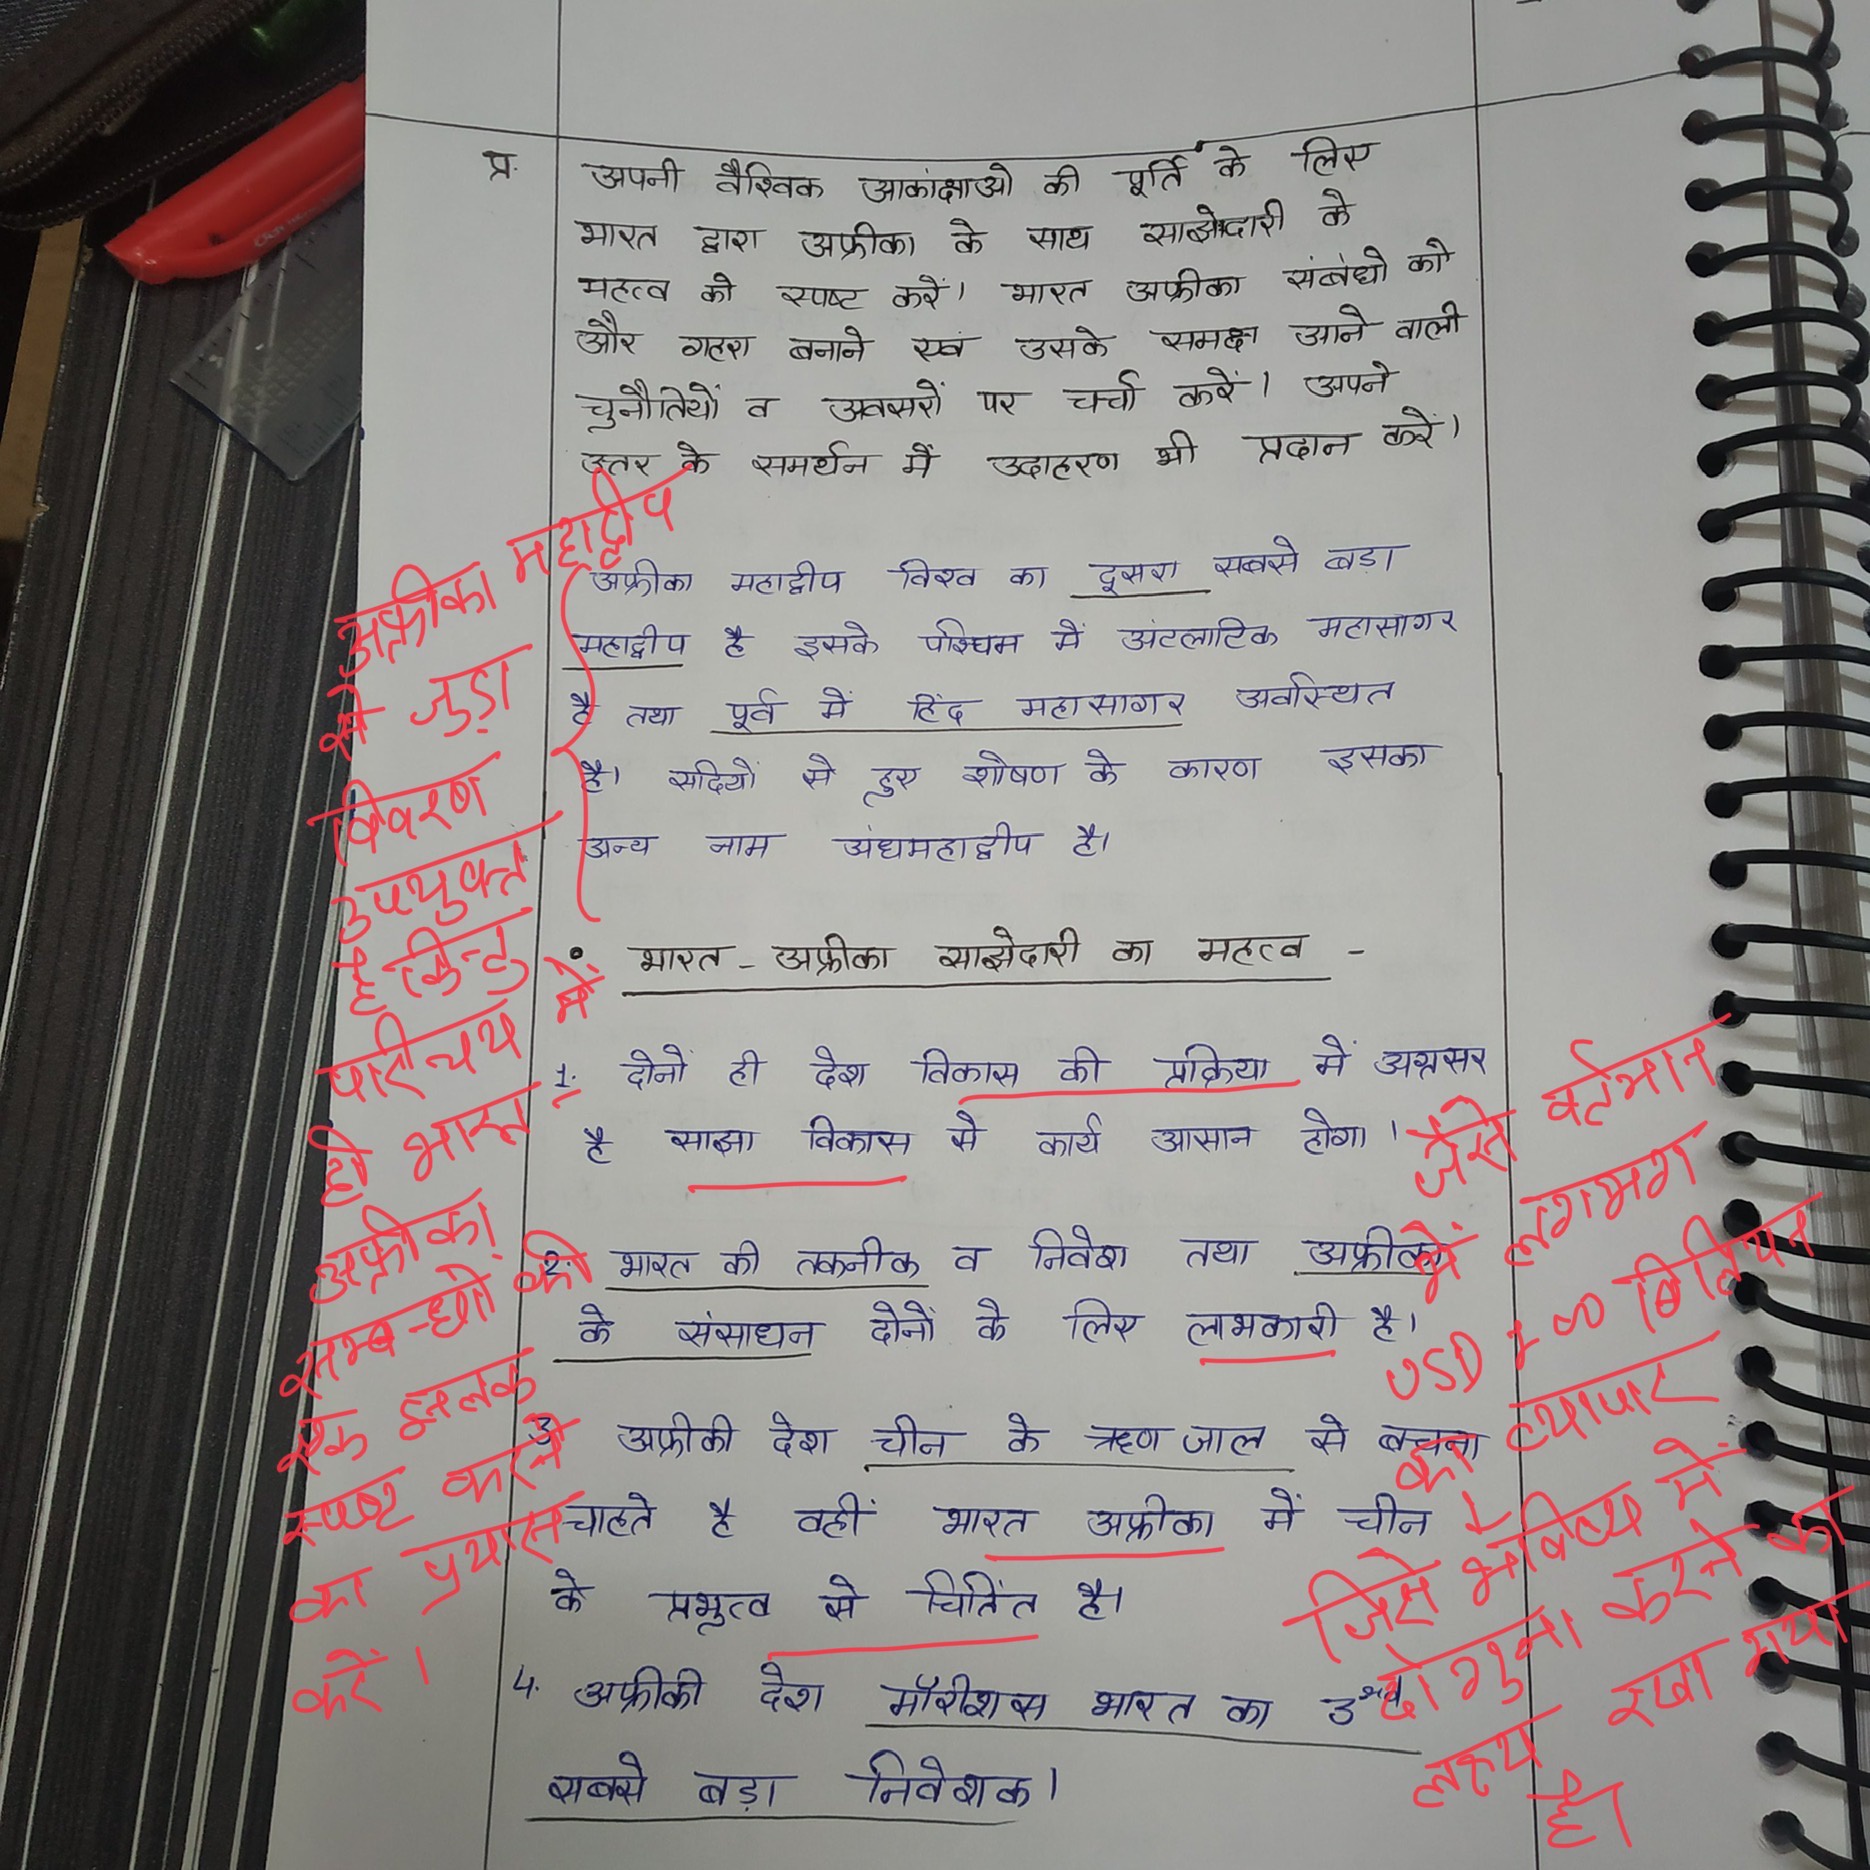 प्र. अपनी वैश्विक आकांक्षाओ की पूर्ति के लिए
भारत द्वारा अफ्रीका के साथ साझेदारी के
महत्व को स्पष्ट करें। भारत अफ्रीका संबंधो को
और गहरा बनाने एवं उसके समक्ष आने वाली
चुनौतियों व अवसरों पर चर्चा करें। अपने
उत्तर के समर्थन में उदाहरण भी प्रदान करें।
अफ्रीका महाद्वीप विश्व का दूसरा सबसे बड़ा
महाद्वीप है इसके पश्चिम में अंटलाटिक महासागर
है तथा पूर्व में हिंद महासागर अवस्थित
है। सदियों से हुए शोषण के कारण इसका
अन्य नाम अंधमहाद्वीप है।
अफ्रीका महाद्वीप
से जुड़ा
विवरण
उपयुक्त
है किन्तु
परिचय में
ही भारत
अफ्रीका
सम्बन्धो की
एक झलक
स्पष्ट करने
का प्रयास
करें।
• भारत - अफ्रीका साझेदारी का महत्व -
1. दोनों ही देश विकास की प्रक्रिया में अग्रसर
है साझा विकास से कार्य आसान होगा।
2. भारत की तकनीक व निवेश तथा अफ्रीका
के संसाधन दोनों के लिए लाभकारी है।
3. अफ्रीकी देश चीन के ऋण जाल से बचना
चाहते है वहीं भारत अफ्रीका में चीन
के प्रभुत्व से चिंतित है।
4. अफ्रीकी देश मॉरीशस भारत का 3
सबसे बड़ा निवेशक।
जैसे वर्तमान
में लगभग
USD 100 बिलियन
का व्यापार
जिसे भविष्य में
दोगुना करने का
लक्ष्य रखा गया
है।